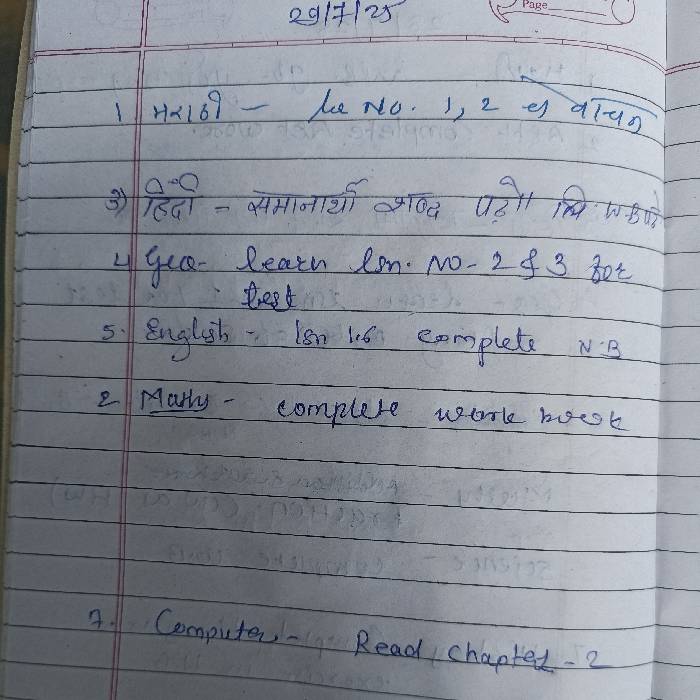 Page
29/7/25
1 मराठी - Ls No. 1, 2 चे वाचन
3) हिंदी - समानार्थी शब्द पढ़ो।। W-B
4 Geo- learn lsn. NO - 2 & 3 for
test
5. English - lsn 1.6 complete N.B
2 Maths - complete work book
7. Computer - Read chapter - 2